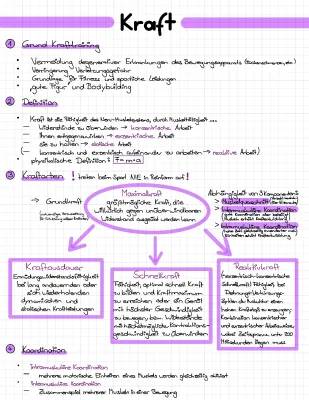 Kraft
① Grund Krafttraining
• Vermeidung degenerativer Erkrankungen des Bewegungsapparats
• Verringerung Verletzungsgefahr
• Grundlage für Fitness und sportliche Leistungen
• gute Figur und Bodybuilding
② Definition
• Kraft ist die Fähigkeit des Nerv-Muskelsystems, durch Muskeltätigkeit...
— Widerstände zu überwinden → konzentrische Arbeit
— ihnen entgegenzuwirken → exzentrische Arbeit
— sie zu halten → statische Arbeit
— (konzentrisch und exzentrisch aufeinander zu arbeiten → reaktive Arbeit)
• physikalische Definition: F = m · a
③ Kraftarten ! treten beim Sport NIE in Reinform auf !
→ Grundkraft
Maximalkraft
größtmögliche Kraft, die
willkürlich gegen unüberwindbaren
Widerstand ausgeübt werden kann
Abhängigkeit von 3 Komponenten
→ Muskelquerschnitt
→ Intramuskuläre Koordination
→ Intermuskuläre Koordination
Kraftausdauer
Ermüdungswiderstandsfähigkeit
bei lang andauernden oder
sich wiederholenden
dynamischen und
statischen Kraftleistungen
Schnellkraft
Fähigkeit, optimal schnell Kraft
zu bilden und Kraftmaximum
zu erreichen oder ein Gerät
mit höchster Geschwindigkeit
zu bewegen, bzw. Widerstände
mit höchstmöglicher Kontraktions-
geschwindigkeit zu überwinden
Reaktivkraft
(exzentrisch-konzentrische
Schnellkraft) Fähigkeit, bei
Dehnungs-Verkürzungs-
Zyklen der Muskulatur einen
hohen Kraftstoß zu erzeugen;
Kombination konzentrischer
und exzentrischer Arbeitsweise,
wobei Zeitspanne unter 200
Millisekunden liegen muss
④ Koordination
• Intramuskuläre Koordination
— mehrere motorische Einheiten eines Muskels werden gleichzeitig aktiviert
• Intermuskuläre Koordination
— Zusammenspiel mehrerer Muskeln in einer Bewegung